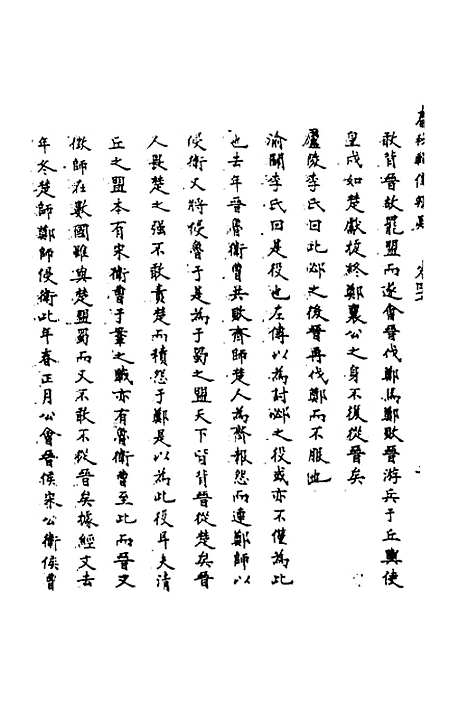 春秋輯傳辨疑 卷四
敢背晉故罷盟而遂會晉伐鄭焉鄭敗晉游兵于丘輿使
皇戌如楚獻捷終鄭襄公之身不復從晉矣
廬陵李氏曰此邲之後晉再伐鄭而不服也
渝關李氏曰是役也左傳以為討邲之役或亦不僅為此
也去年晉魯衛曹共敗齊師楚人為齊報怨而連鄭師以
侵衛又將侵魯于是為于蜀之盟天下皆背晉從楚矣晉
人畏楚之强不敢責楚而積怨于鄭是以為此役耳夫清
丘之盟本有宋衛曹于鞌之戰亦有魯衛曹至此而晉又
徵師在數國雖與楚盟蜀而又不敢不從晉矣據經文去
年冬楚師鄭師侵衛此年春正月公會晉侯宋公衛侯曹